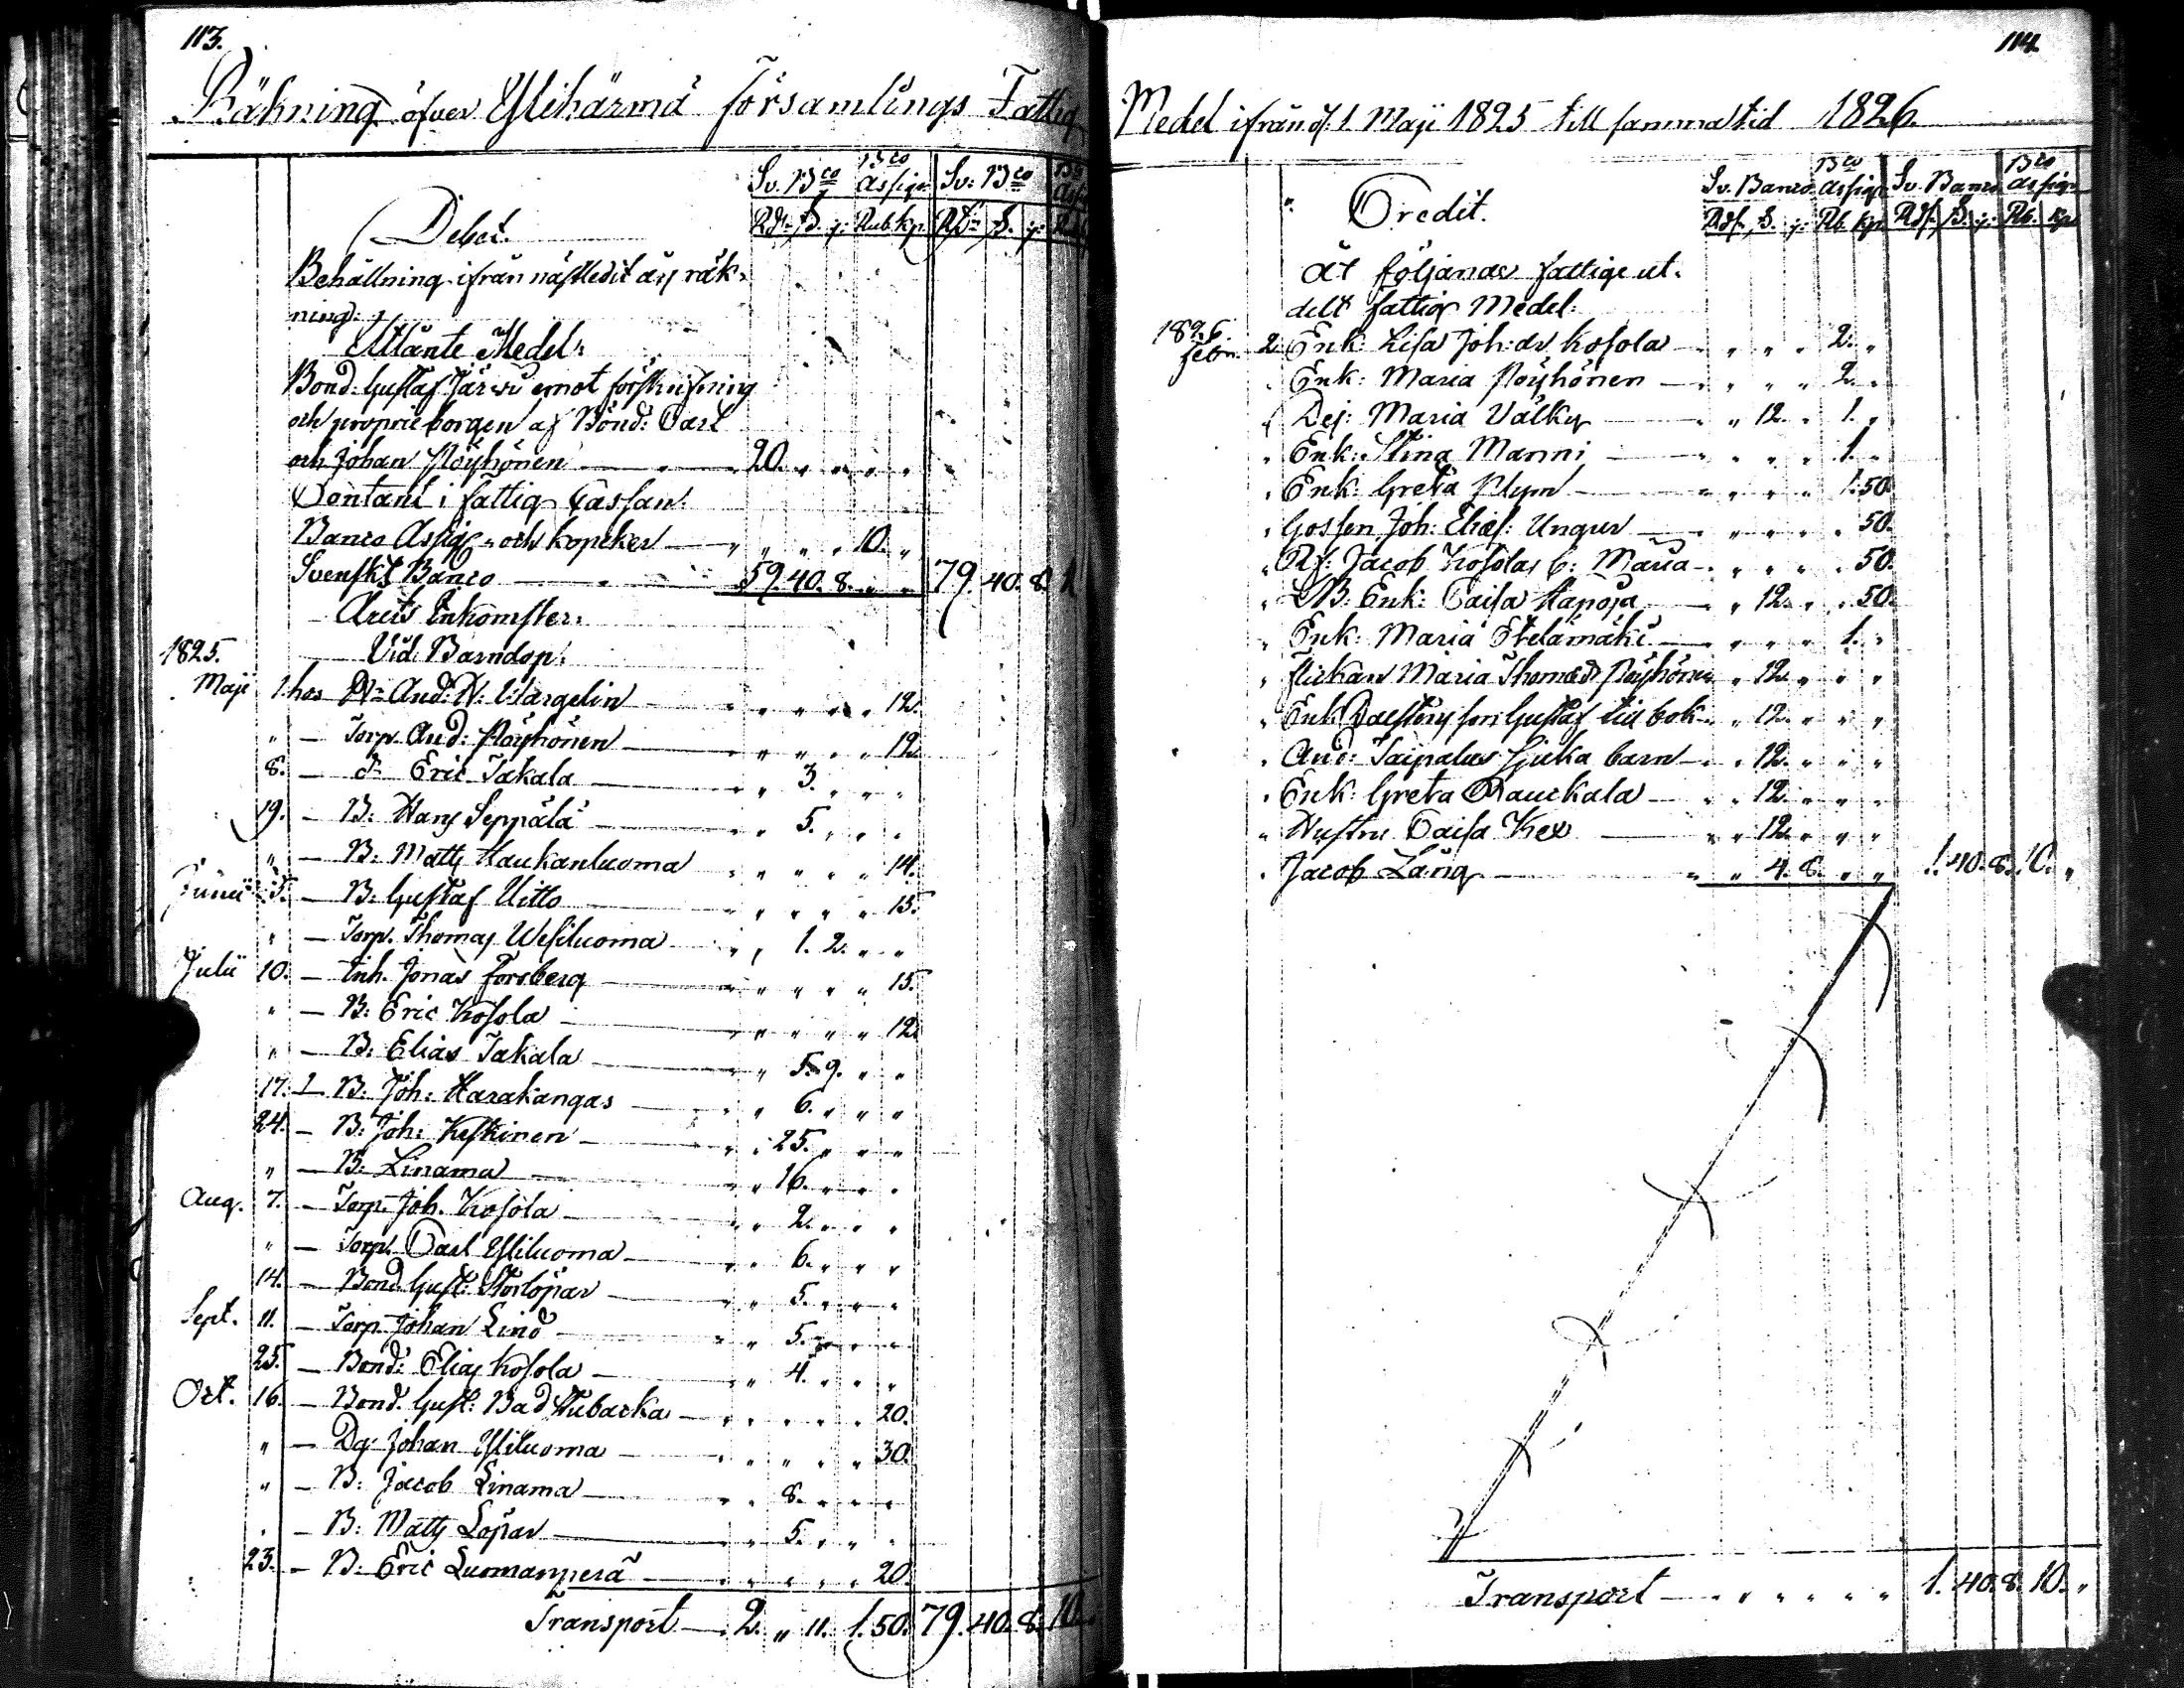 113.
Räkning öfver Ylihärmä församlings Fattig
Sv. Bco Bco Assign. Sv. Bco
Debet. Rdr S. Rub. Kp.
Behållning ifrån näst ledit års räk-
ning:
Utlånte Medel:
Bond: Gustaf Järvi emot förskrifning
och proprieborgen af Bönd: Carl
och Johan Pöyhönen — 20. " " " "
Contant i fattig Cassan:
Banco Assign. och kopeker — " " " 10. "
Svenskt Banco — 59. 40. 8. " " 79. 40. 8.
Årets Inkomster:
1825. Vid Barndop:
Maji 1. hos And: W: Wargelin — " " " " 12.
" — Torp. And: Pöyhönen — " " " " 12.
8. — Eric Takala — " 3. " " "
19. — B: Hans Seppälä — " 5. " " "
" — B: Matts Haukanluoma " " " " 14.
Junii 5. — B: Gustaf Uitto — " " " " 15.
" — Torp. Thomas Wesiluoma " 1. 2. " "
Julii 10. — Inh. Jonas Forsberg — " " " " 15.
" — B: Eric Kosola — " " " " 12.
" — B: Elias Takala — " 5. 9. " "
17. — B: Joh: Harakangas — " 6. " " "
24. — B: Joh: Keskinen — " 25. " " "
" — B: Linama — " 16. " " "
Aug. 7. — Torp. Joh. Kosola — " 2. " " "
" — Torp. Carl Yliluoma — " 6. " " "
14. — Bond. Gust: Storlöpar — " 5. " " "
Sept. 11. — Torp. Johan Lind — " 5. " " "
25. — Bond: Elias Kosola — " 4. " " "
Oct. 16. — Bond. Gust: Bad — " " " " 20.
" — Dg: Johan Yliluoma — " " " " 30.
" — B: Jacob Linama — " 8. " " "
" — B: Matts Löpar — " 5. " " "
23. — B: Eric Luomanperä — " " " " 20.
Transport — 2. " 11. 1. 50. 79. 40. 8. 10.
114.
Medel ifrån d. 1. Maji 1825 till samma tid 1826.
Sv. Banco Bco Assign Sv. Banco Bco Assign
Credit. Rdr. S. Rb. Kp. Rdr. S. Rb. Kp
Åt följande fattige ut-
delt fattig Medel:
1826.
Febr. 2. Enk: Lisa Joh:dr Kosola — " " " 2. "
" Enk: Maria Pöyhönen — " " " 2. "
" Dej: Maria Välky — " 12. " 1. "
" Enk: Stina Manni — " " " 1. "
" Enk: Greta Plym — " " " 1. 50.
" Gossen Joh: Elias: Ungur — " " " " 50.
" Jacob Kosolas b: Maria — " " " " 50.
" Enk: Caisa Hapoja — " 12. " " 50.
" Enk: Maria Etelämäki — " " " 1. "
" Flickan Maria Thomasdr Pöyhönen " 12. " " "
" Enk son Gustaf till bok — " 12. " " "
" And: Taipalus sjuka barn — " 12. " " "
" Enk: Greta Rauckala — " 12. " " "
" Hustru Caisa Kex — " 12. " " "
" Jacob Lång — " 4. 8. " " 1. 40. 8. 10. "
Transport — " " " " " 1. 40. 8. 10. "